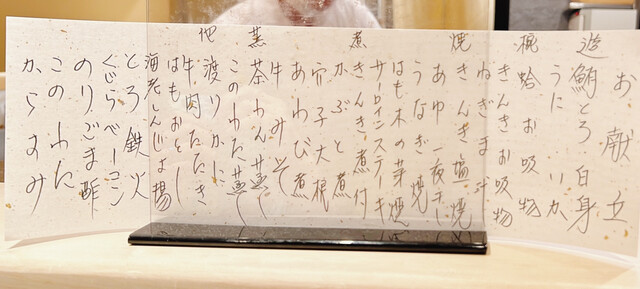 お献立
造
鮪とろ 白身
うに いか
椀
蛤お吸物
きんきお吸物
ねぎま
焼
きんき塩焼
あゆ 一夜干し
うなぎ 焼
はも木の芽焼
サーロインステーキ
煮
きんき煮付
かぶと煮
穴子大根
あわび煮
牛みそ
蒸
茶わん蒸し
このわた蒸し
他
渡りかに
牛肉たたき
はもおとし
海老しんじょ揚
とろ鉄火
くじらベーコン
のりごま酢
このわた
からすみ